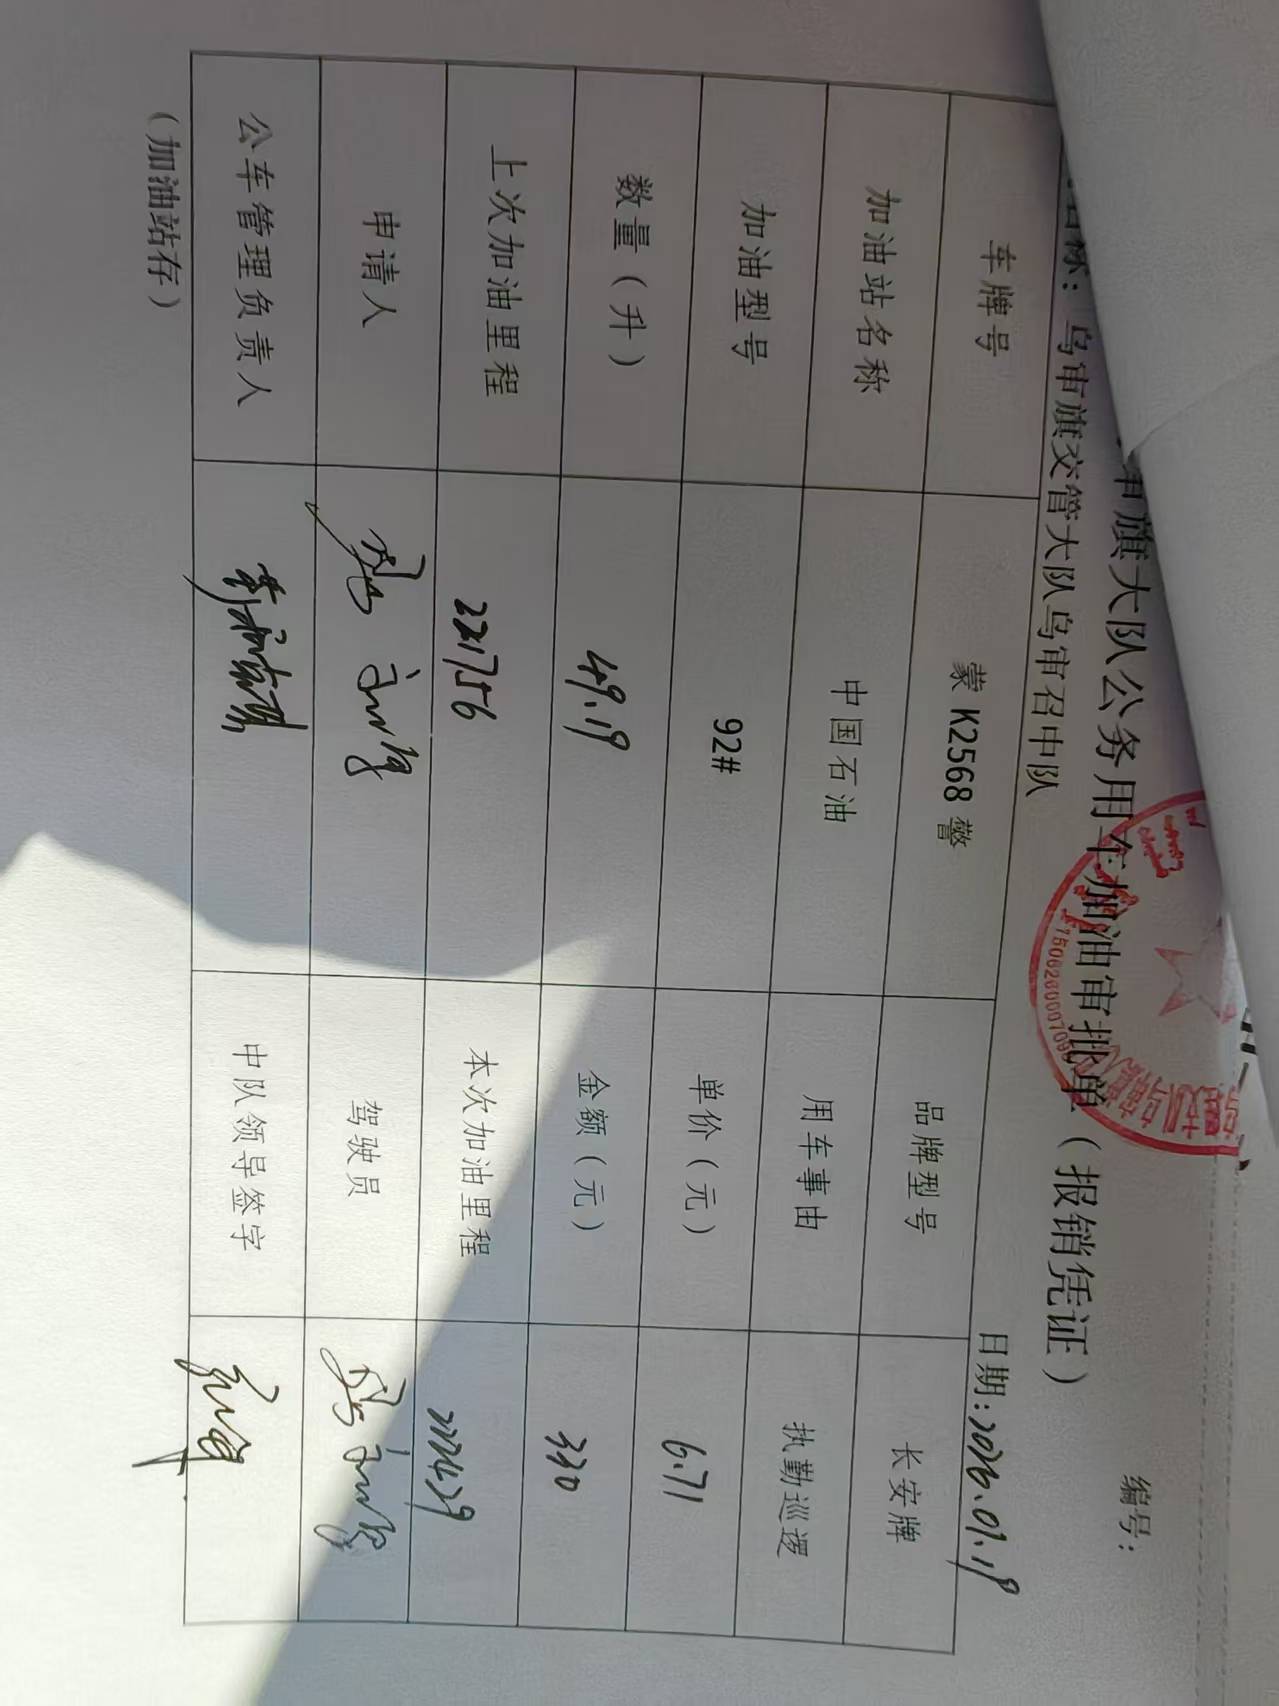 审旗大队公务用车加油审批单（报销凭证）
编号：
名称：乌审旗交管大队乌审召中队 日期：2026.01.19
车牌号 蒙 K2568 警 品牌型号 长安牌
加油站名称 中国石油 用车事由 执勤巡逻
加油型号 92# 单价（元） 6.71
数量（升） 49.19 金额（元） 330
上次加油里程 221756 本次加油里程
申请人 驾驶员
公车管理负责人 中队领导签字
（加油站存）